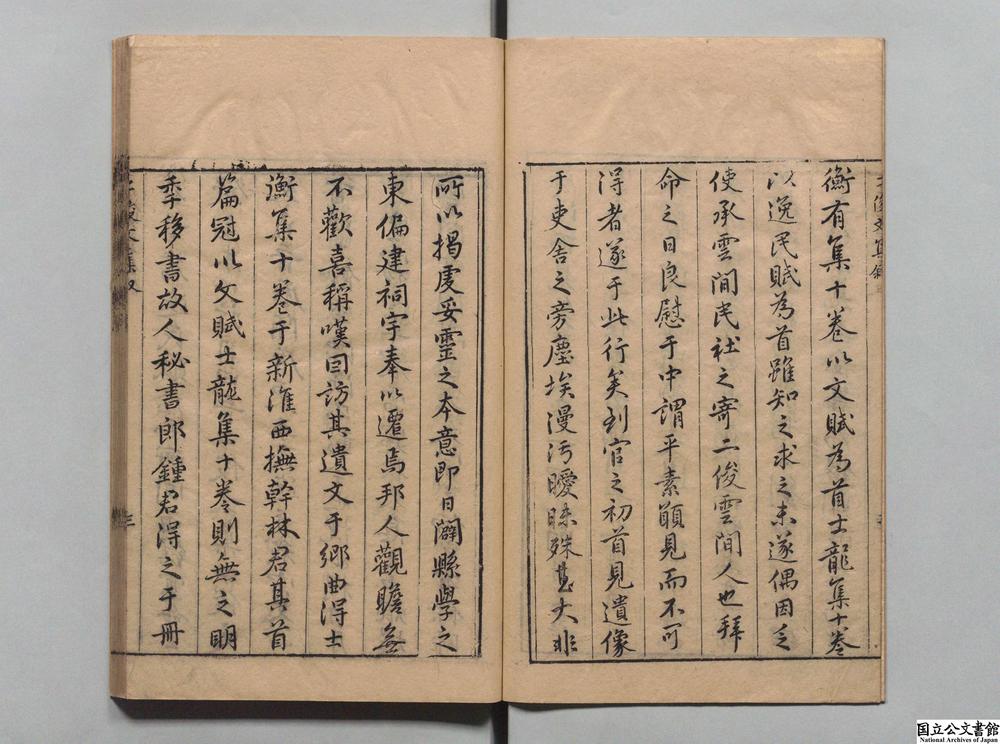 衡有集十卷以文賦為首士龍集十卷
以逸民賦為首雖知之求之未遂偶因乏
使承雲間民社之寄二俊雲間人也拜
命之日良慰于中謂平素願見而不可
得者遂于此行矣到官之初首見遺像
于吏舍之旁塵埃漫污曖昧殊甚大非
所以揭虔妥靈之本意即日闢縣學之
東偏建祠宇奉以遷焉邦人觀瞻無
不歡喜稱嘆囙訪其遺文于鄉曲得士
衡集十卷于新淮西撫幹林君其首
篇冠以文賦士龍集十卷則無之明
季移書故人秘書郎鍾君得之于冊
国立公文書館
National Archives of Japan